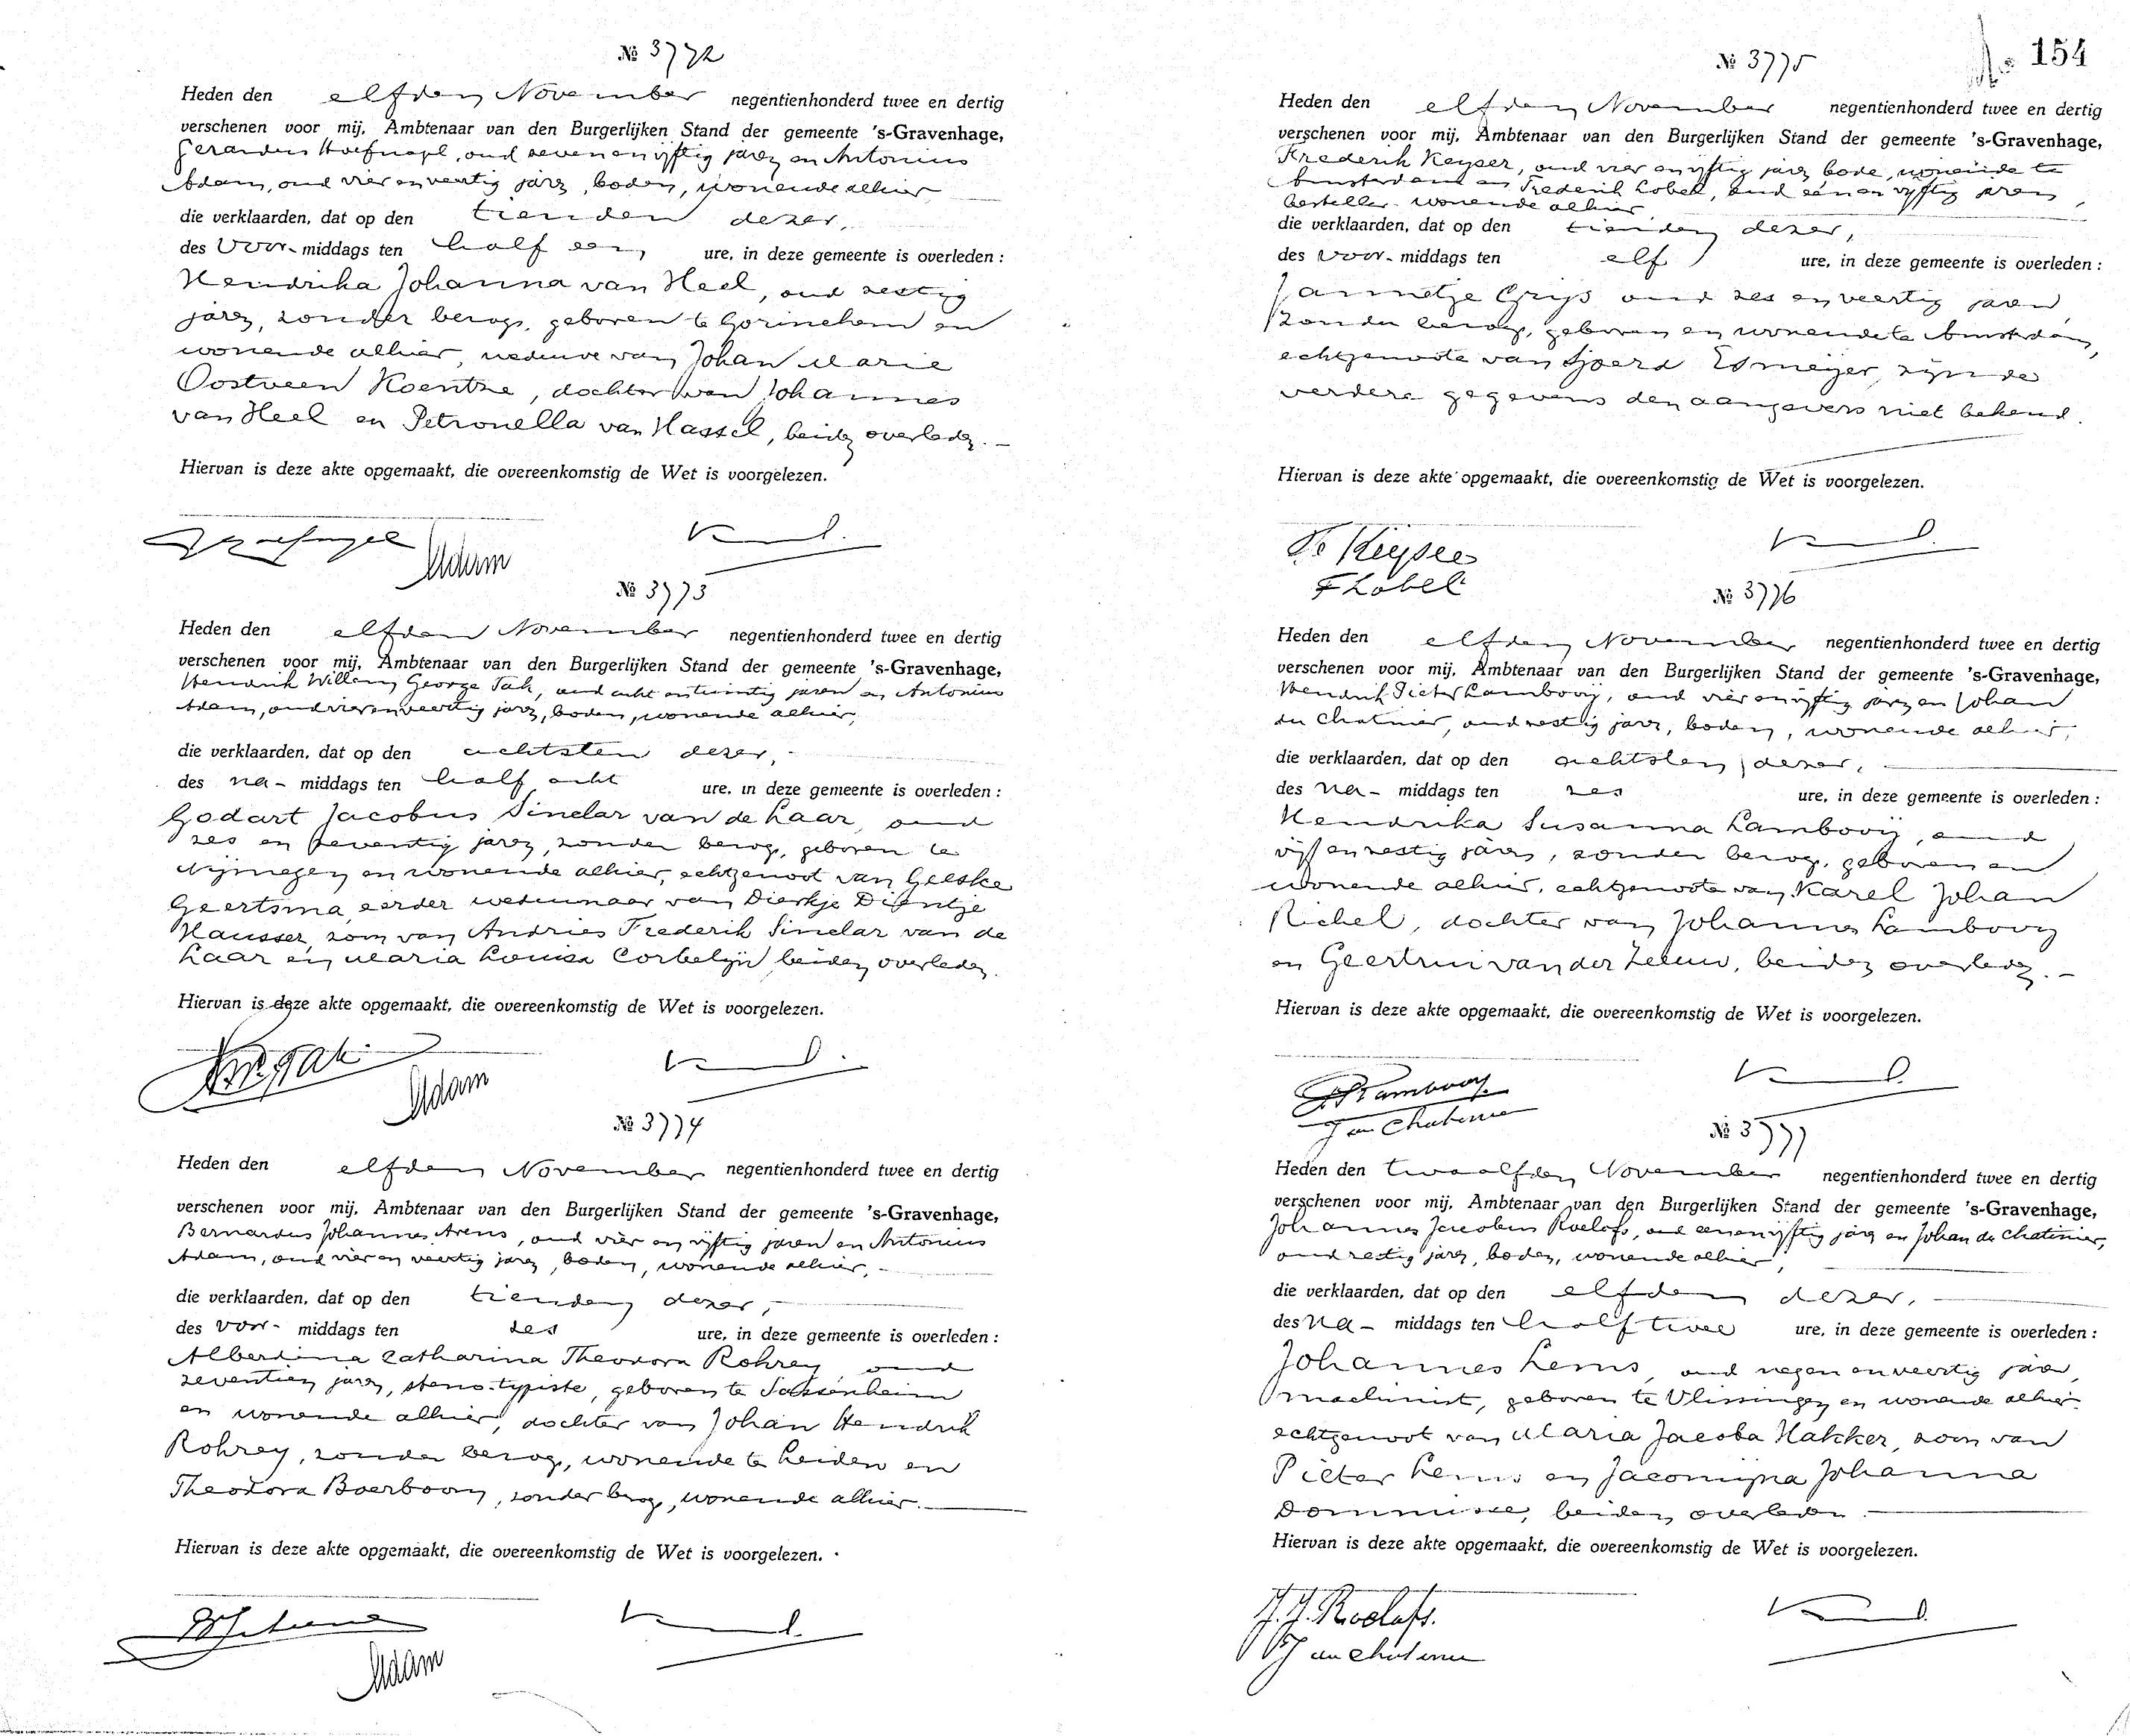 № 3772
Heden den elfden November negentienhonderd twee en dertig
verschenen voor mij, Ambtenaar van den Burgerlijken Stand der gemeente 's-Gravenhage,
Gerardus Hoefnagel, oud zeven en vijftig jaren en Antonius
Adam, oud vier en veertig jaren, boden, wonende alhier
die verklaarden, dat op den tienden dezer,
des voor-middags ten half een ure, in deze gemeente is overleden:
Hendrika Johanna van Heel, oud zestig
jaren, zonder beroep, geboren te Gorinchem en
wonende alhier, weduwe van Johan Marie
Oostveen Koentze, dochter van Johannes
van Heel en Petronella van Hassel, beiden overleden.-
Hiervan is deze akte opgemaakt, die overeenkomstig de Wet is voorgelezen.
Adam
№ 3773
Heden den elfden November negentienhonderd twee en dertig
verschenen voor mij, Ambtenaar van den Burgerlijken Stand der gemeente 's-Gravenhage,
Hendrik Willem George Tak, oud acht en twintig jaren en Antonius
Adam, oud vier en veertig jaren, boden, wonende alhier,
die verklaarden, dat op den achtsten dezer,
des na-middags ten half acht ure, in deze gemeente is overleden:
Godart Jacobus Sinclar van de Laar, oud
zes en zeventig jaren, zonder beroep, geboren te
Nijmegen en wonende alhier, echtgenoot van Geeske
Geertsma, eerder weduwnaar van Dierkje Dientje
Hausser, zoon van Andries Frederik Sinclar van de
Laar en Maria Louisa Corbelijn beiden overleden.
Hiervan is deze akte opgemaakt, die overeenkomstig de Wet is voorgelezen.
Adam
№ 3774
Heden den elfden November negentienhonderd twee en dertig
verschenen voor mij, Ambtenaar van den Burgerlijken Stand der gemeente 's-Gravenhage,
Bernardus Johannes Arens, oud vier en vijftig jaren en Antonius
Adam, oud vier en veertig jaren, boden, wonende alhier,
die verklaarden, dat op den tienden dezer,
des voor-middags ten zes ure, in deze gemeente is overleden:
Alberdina Catharina Theodora Rohrey, oud
zeventien jaren, steno-typiste, geboren te Sassenheim
en wonende alhier, dochter van Johan Hendrik
Rohrey, zonder beroep, wonende te Leiden en
Theodora Boerboom, zonder beroep, wonende alhier.
Hiervan is deze akte opgemaakt, die overeenkomstig de Wet is voorgelezen.
Adam
154
№ 3775
Heden den elfden November negentienhonderd twee en dertig
verschenen voor mij, Ambtenaar van den Burgerlijken Stand der gemeente 's-Gravenhage,
Frederik Keyser, oud vier en vijftig jaren bode, wonende te
Amsterdam en Frederik Lobel, oud een en vijftig jaren,
besteller wonende alhier
die verklaarden, dat op den tienden dezer,
des voor-middags ten elf ure, in deze gemeente is overleden:
Jannetje Grijs oud zes en veertig jaren,
zonder beroep, geboren en wonende te Amsterdam,
echtgenoote van Sjoerd Esmeijer, zijnde
verdere gegevens den aangevers niet bekend.
Hiervan is deze akte opgemaakt, die overeenkomstig de Wet is voorgelezen.
Fr Keyser
F Lobel
№ 3776
Heden den elfden November negentienhonderd twee en dertig
verschenen voor mij, Ambtenaar van den Burgerlijken Stand der gemeente 's-Gravenhage,
Hendrik Pieter Lambooij, oud vier en vijftig jaren en Johan
du Chatinier, oud zestig jaren, boden, wonende alhier,
die verklaarden, dat op den achtsten dezer,
des na-middags ten zes ure, in deze gemeente is overleden:
Hendrika Susanna Lambooij, oud
vijf en zestig jaren, zonder beroep, geboren en
wonende alhier, echtgenoote van Karel Johan
Richel, dochter van Johannes Lambooij
en Geertrui van der Leeuw, beiden overleden.-
Hiervan is deze akte opgemaakt, die overeenkomstig de Wet is voorgelezen.
Lambooy
J du Chatinier
№ 3777
Heden den twaalfden November negentienhonderd twee en dertig
verschenen voor mij, Ambtenaar van den Burgerlijken Stand der gemeente 's-Gravenhage,
Johannes Jacobus Roelofs, oud een en vijftig jaren en Johan du Chatinier,
oud zestig jaren, boden, wonende alhier,
die verklaarden, dat op den elfden dezer,
des na-middags ten half twee ure, in deze gemeente is overleden:
Johannes Lems, oud negen en veertig jaren,
machinist, geboren te Vlissingen en wonende alhier
echtgenoot van Maria Jacoba Hakker, zoon van
Pieter Lems en Jacomijna Johanna
Dommisse, beiden overleden.
Hiervan is deze akte opgemaakt, die overeenkomstig de Wet is voorgelezen.
J. J. Roelofs.
J du Chatinier